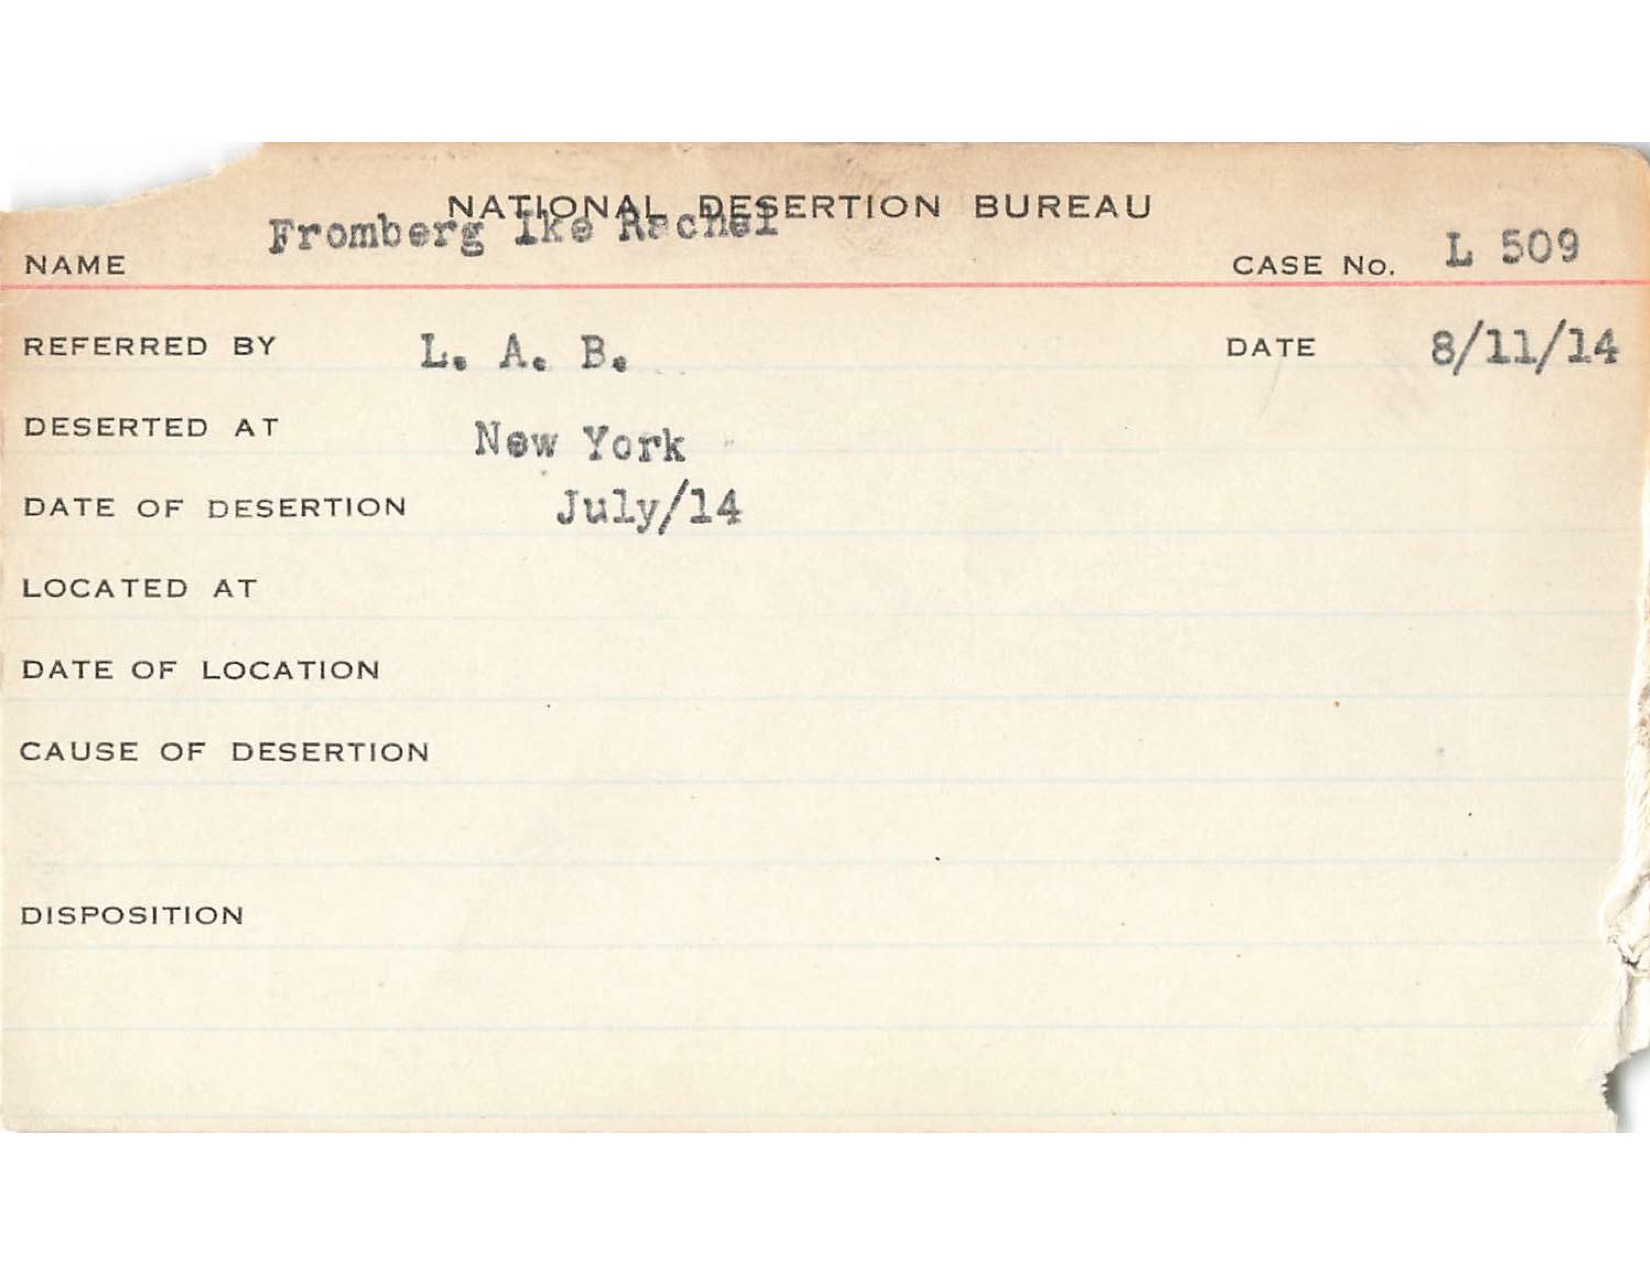 NATIONAL DESERTION BUREAU
NAME Fromberg Ike Rachel CASE No. L 509
REFERRED BY L. A. B. DATE 8/11/14
DESERTED AT New York
DATE OF DESERTION July/14
LOCATED AT
DATE OF LOCATION
CAUSE OF DESERTION
DISPOSITION